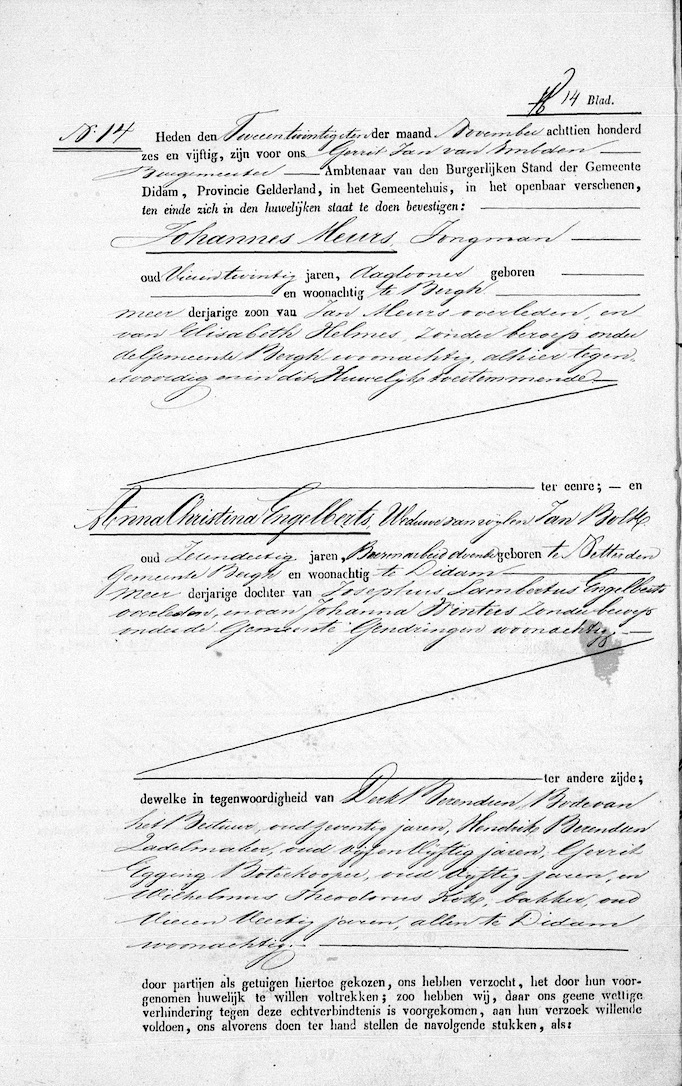 14 Blad.
N: 14
Heden den Tweeentwintigsten der maand November achttien honderd
zes en vijftig, zijn voor ons Gerrit Jan van Embden
Burgemeester Ambtenaar van den Burgerlijken Stand der Gemeente
Didam, Provincie Gelderland, in het Gemeentehuis, in het openbaar verschenen,
ten einde zich in den huwelijken staat te doen bevestigen:
Johannes Meurs, Jongman
oud Vierentwintig jaren, daglooner geboren
en woonachtig te Bergh
meer derjarige zoon van Jan Meurs overleden, en
van Elisabeth Helmes, zonder beroep onder
de Gemeente Bergh woonachtig, alhier tegen-
woordig en in dit Huwelijk toestemmende
ter eenre; — en
Anna Christina Engelberts, Weduwe van wijlen Jan Bolk
oud Zesendertig jaren, geboren te Netterden
Gemeente Bergh en woonachtig te Didam
meer derjarige dochter van Josephus Lambertus Engelberts
overleden, en van Johanna Winters zonder beroep
onder de Gemeente Gendringen woonachtig.
ter andere zijde;
dewelke in tegenwoordigheid van Derk Berendsen, Bode van
het Bestuur, oud zeventig jaren, Hendrik Berendsen
Zadelmaker, oud vijfen Vyftig jaren, Gerrit
Egging Boterkooper, oud Vyftig jaren, en
Wilhelmus Theodorus Kok, bakker, oud
Vieren Veertig jaren, allen te Didam
woonachtig.
door partijen als getuigen hiertoe gekozen, ons hebben verzocht, het door hun voor-
genomen huwelijk te willen voltrekken; zoo hebben wij, daar ons geene wettige
verhindering tegen deze echtverbindtenis is voorgekomen, aan hun verzoek willende
voldoen, ons alvorens doen ter hand stellen de navolgende stukken, als: